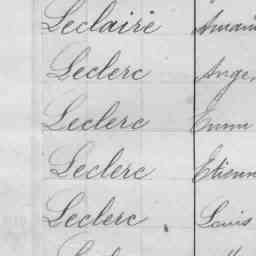 Leclaire
Leclerc Ange
Leclerc Emm
Leclerc Etienn
Leclerc Louis